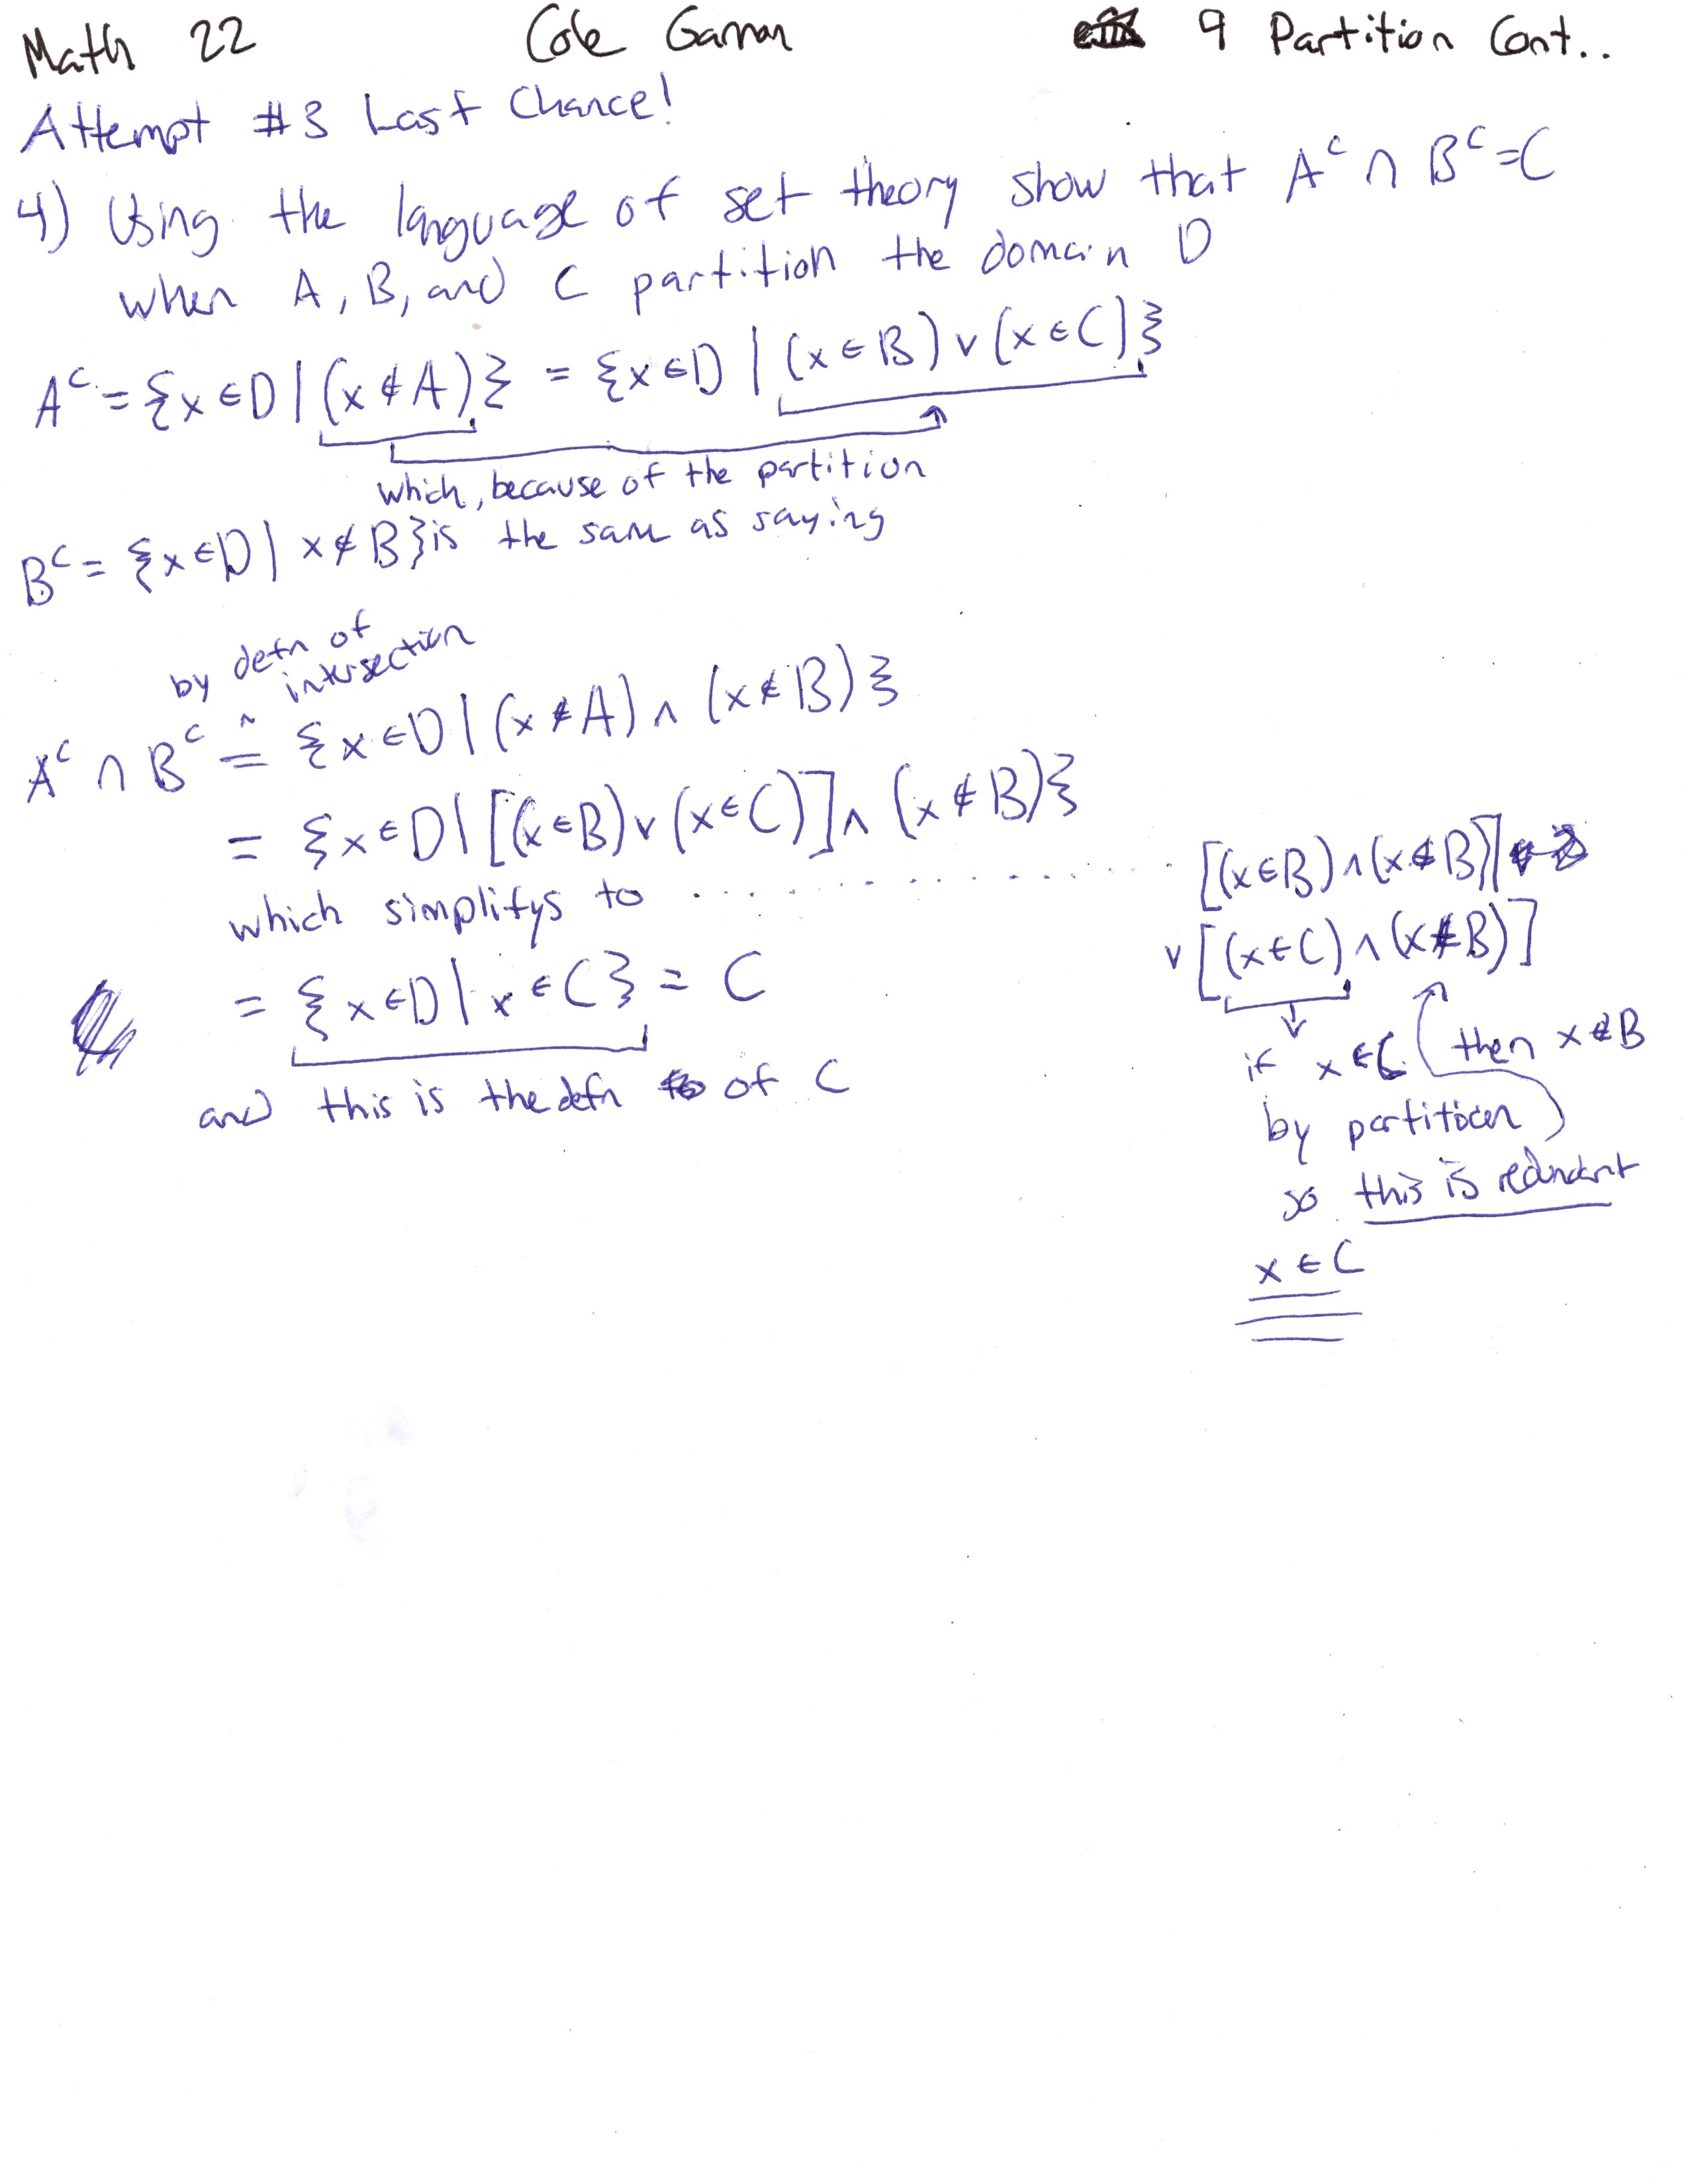 Math 22 Cole Gannon 9 Partition Cont..
Attempt #3 Last Chance!
4) Using the language of set theory show that Aᶜ ∩ Bᶜ=C
when A, B, and C partition the domain D
Aᶜ = {x ∈ D | (x ∉ A)} = {x ∈ D | (x ∈ B) ∨ (x ∈ C)}
which, because of the partition
is the same as saying
Bᶜ = {x ∈ D | x ∉ B}
by defn of
intersection
Aᶜ ∩ Bᶜ = {x ∈ D | (x ∉ A) ∧ (x ∉ B)}
= {x ∈ D | [(x ∈ B) ∨ (x ∈ C)] ∧ (x ∉ B)}
which simplifys to ..............
[(x ∈ B) ∧ (x ∉ B)]
∨ [(x ∈ C) ∧ (x ∉ B)]
= {x ∈ D | x ∈ C} = C
and this is the defn of C
if x ∈ C (then x ∉ B
by partition)
so this is redundant
x ∈ C